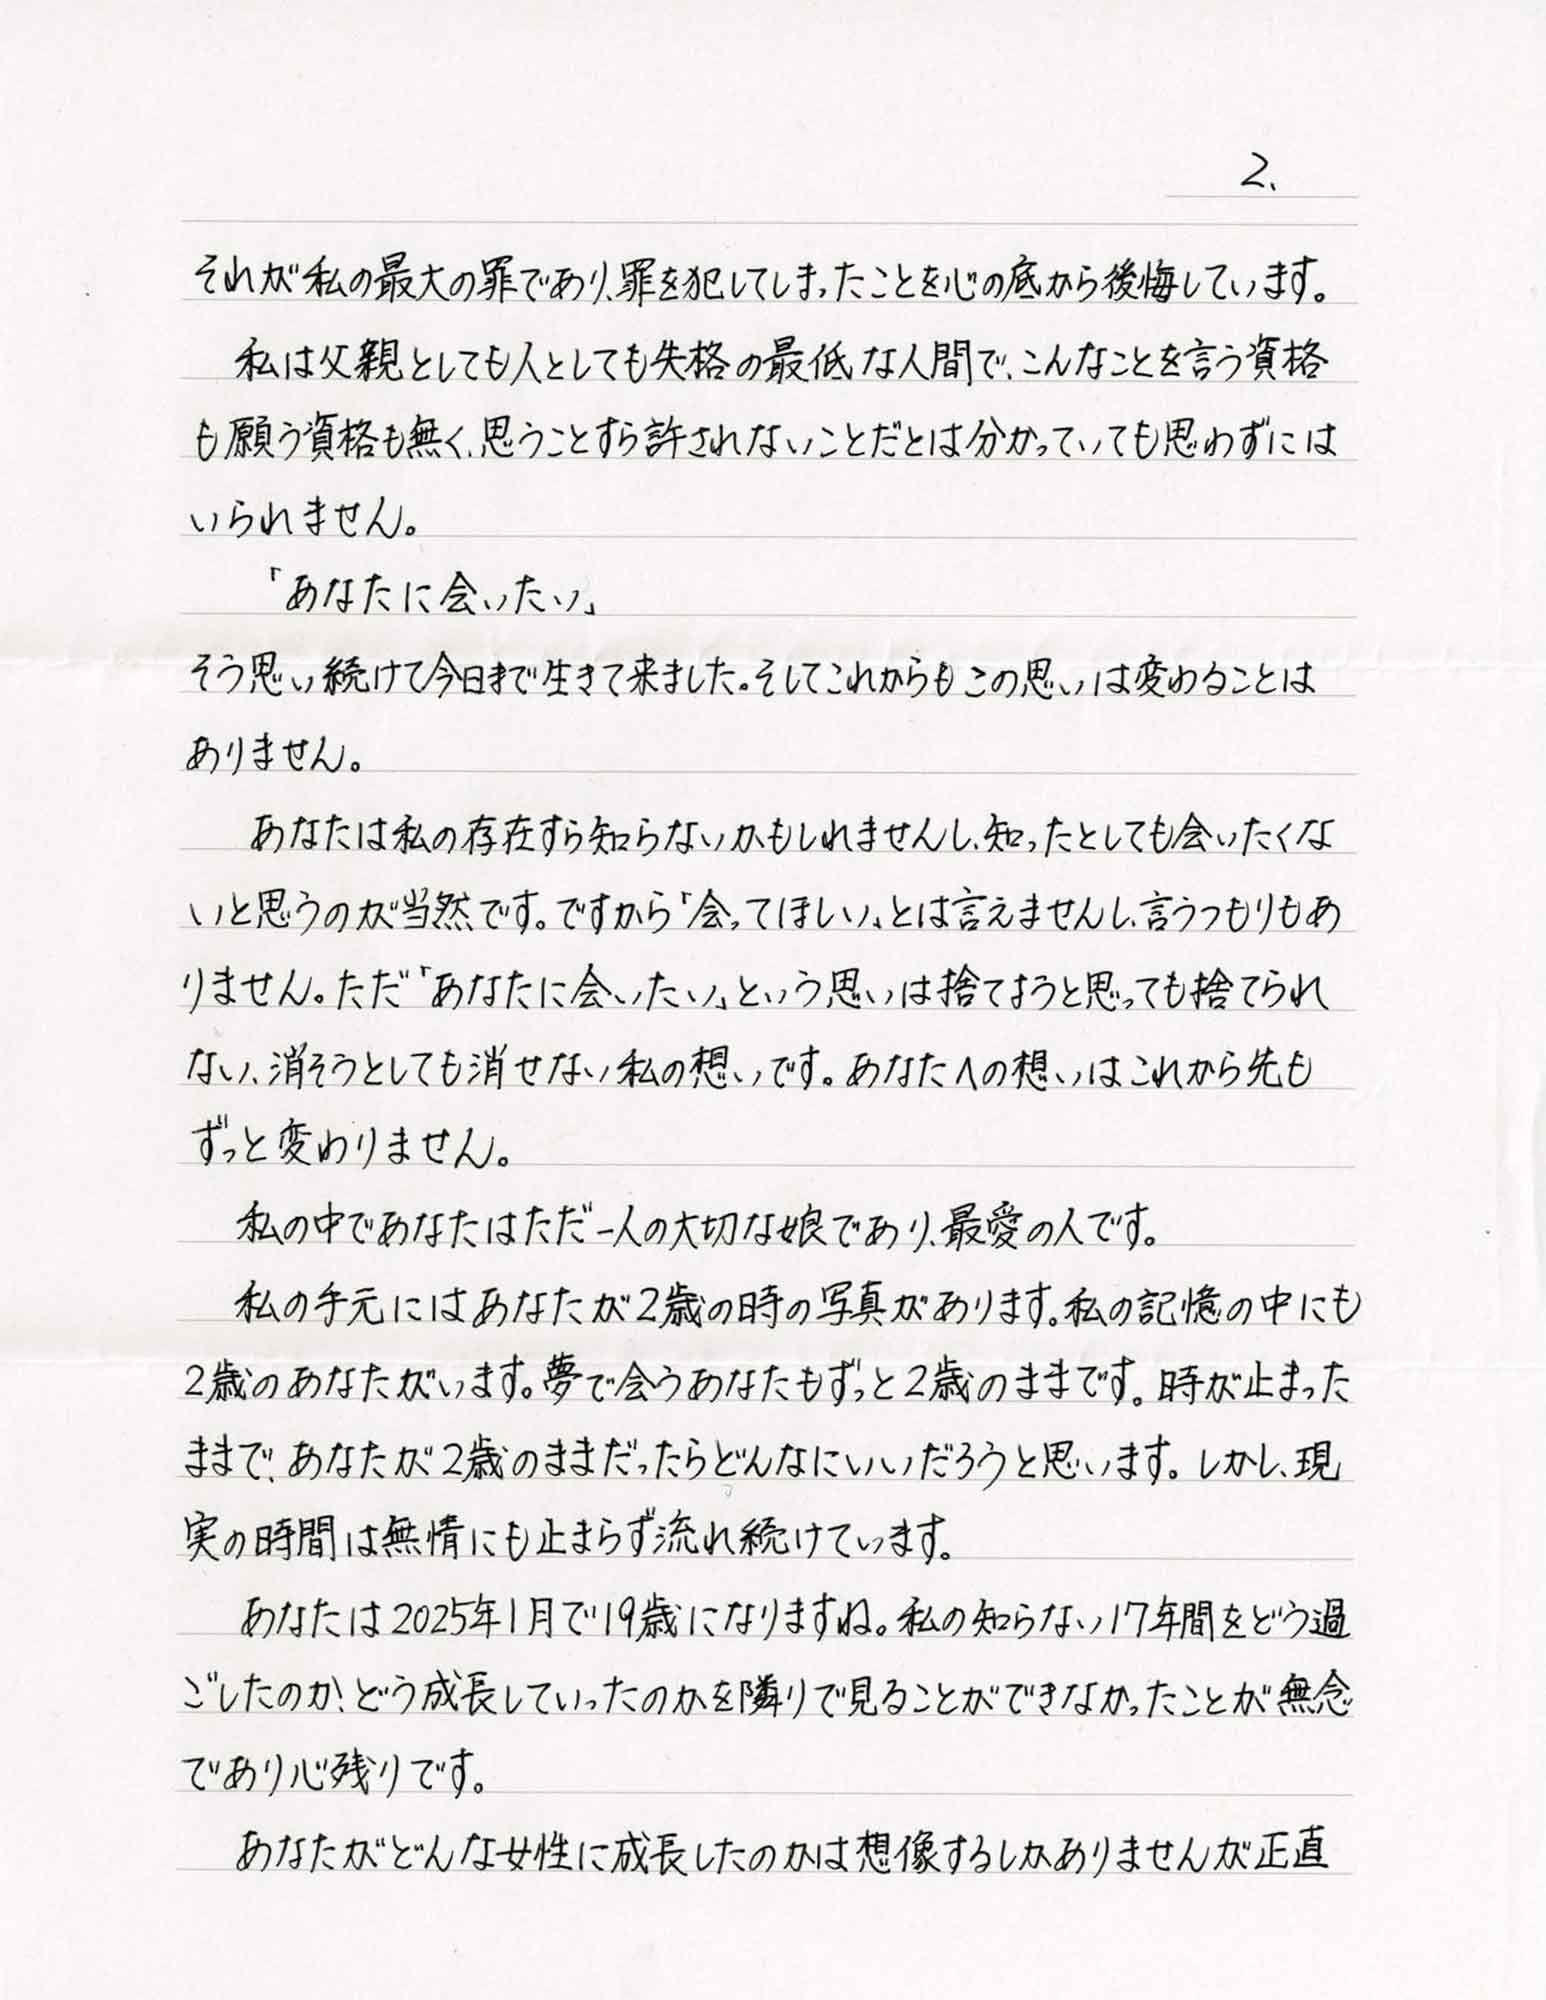 2、
それが私の最大の罪であり、罪を犯してしまったことを心の底から後悔しています。
私は父親としても人としても失格の最低な人間で、こんなことを言う資格
も願う資格も無く、思うことすら許されないことだとは分かっていても思わずには
いられません。
「あなたに会いたい」
そう思い続けて今日まで生きて来ました。そしてこれからもこの思いは変わることは
ありません。
あなたは私の存在すら知らないかもしれませんし、知ったとしても会いたくな
いと思うのが当然です。ですから「会ってほしい」とは言えませんし、言うつもりもあ
りません。ただ「あなたに会いたい」という思いは捨てようと思っても捨てられ
ない、消そうとしても消せない私の想いです。あなたへの想いはこれから先も
ずっと変わりません。
私の中であなたはただ一人の大切な娘であり、最愛の人です。
私の手元にはあなたが2歳の時の写真があります。私の記憶の中にも
2歳のあなたがいます。夢で会うあなたもずっと2歳のままです。時が止まった
ままで、あなたが2歳のままだったらどんなにいいだろうと思います。しかし、現
実の時間は無情にも止まらず流れ続けています。
あなたは2025年1月で19歳になりますね。私の知らない17年間をどう過
ごしたのか、どう成長していったのかを隣りで見ることができなかったことが無念
であり心残りです。
あなたがどんな女性に成長したのかは想像するしかありませんが正直